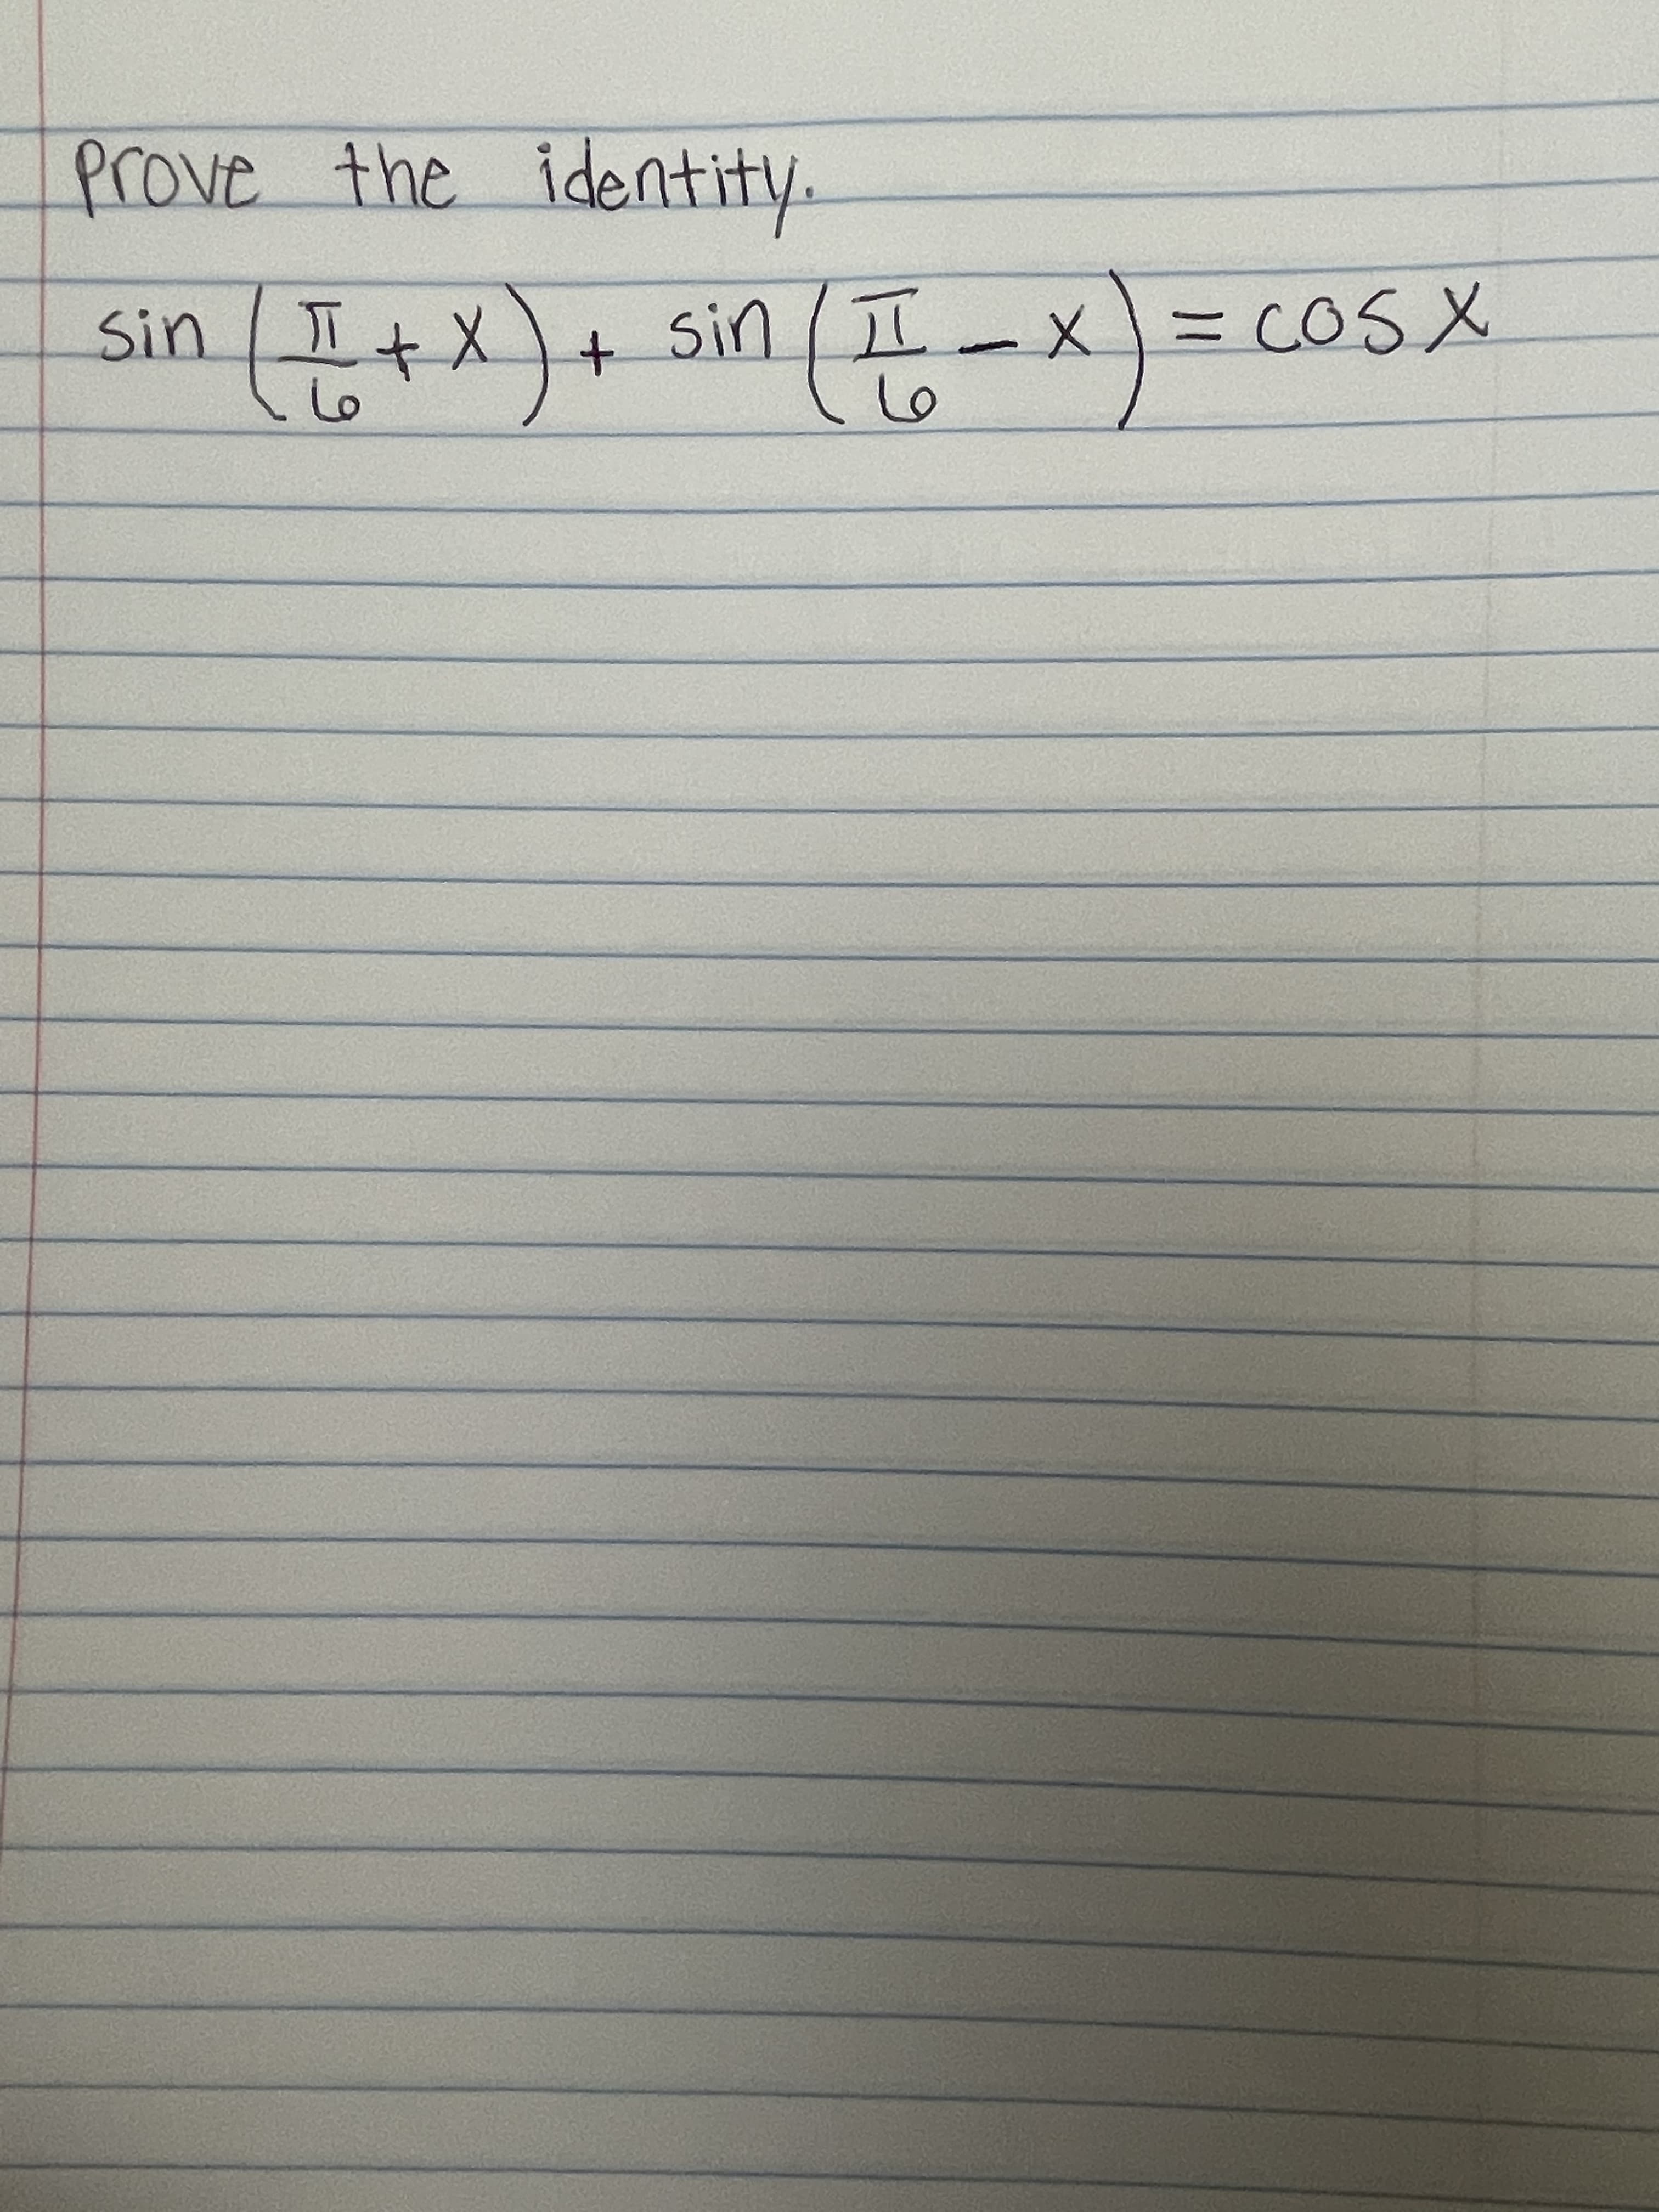 Prove the identity.
sin (π/6 + x) + sin (π/6 - x) = cos x